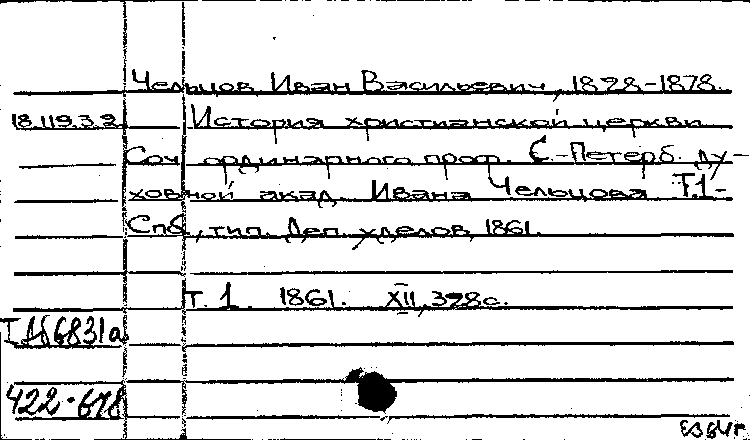 Чельцов Иван Васильевич, 1828-1878.
18.119.3.2 История христианской церкви
Соч. ординарного проф. С.-Петерб. ду-
ховной акад. Ивана Чельцова. Т.1-
Спб., тип. Деп. уделов, 1861.
Т. 1. 1861. XII, 328с.
422-678